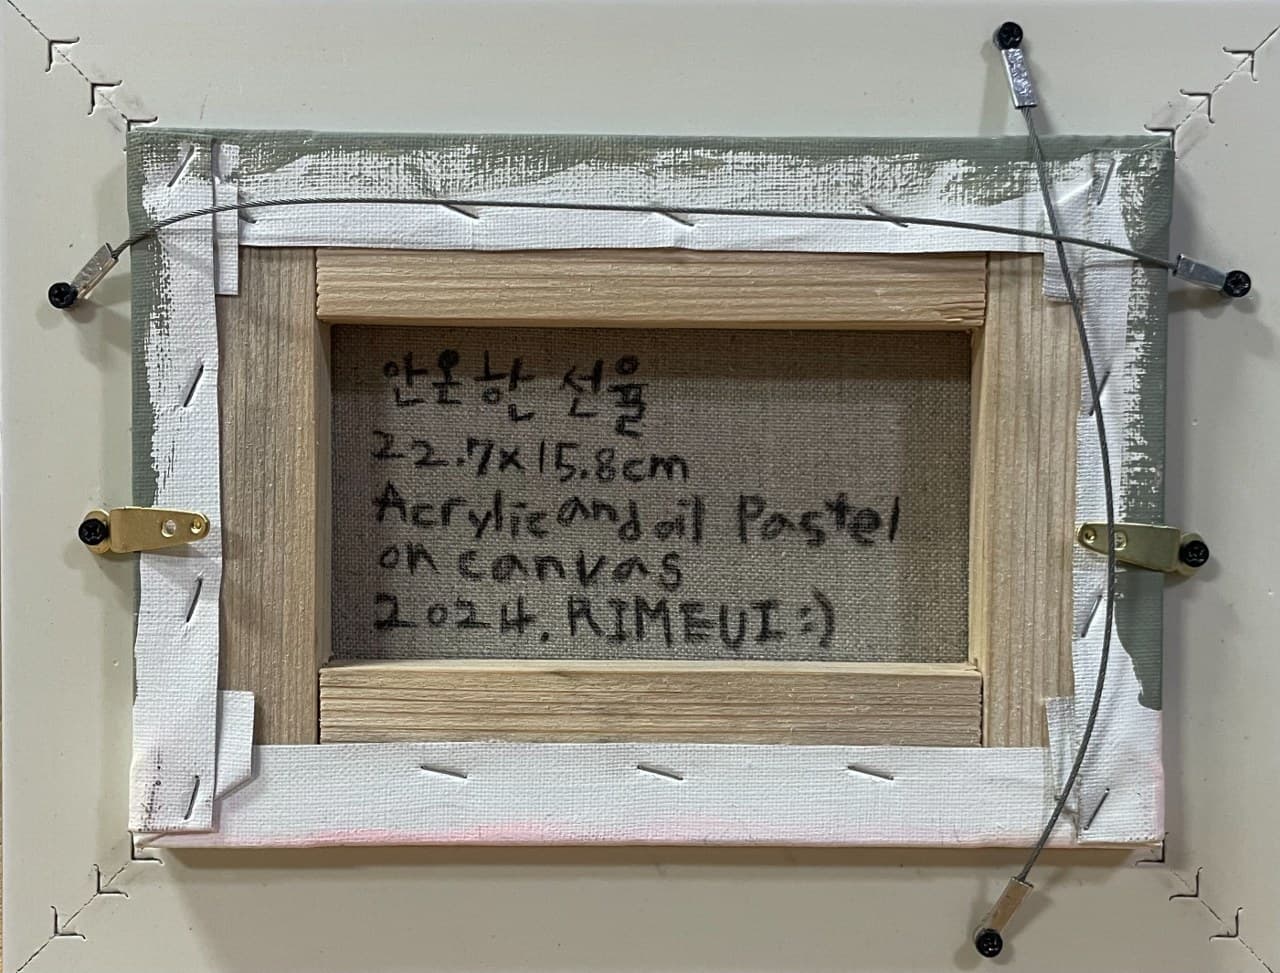 안온한 선율
22.7x15.8cm
Acrylic and oil Pastel
on canvas
2024. RIMEUI :)